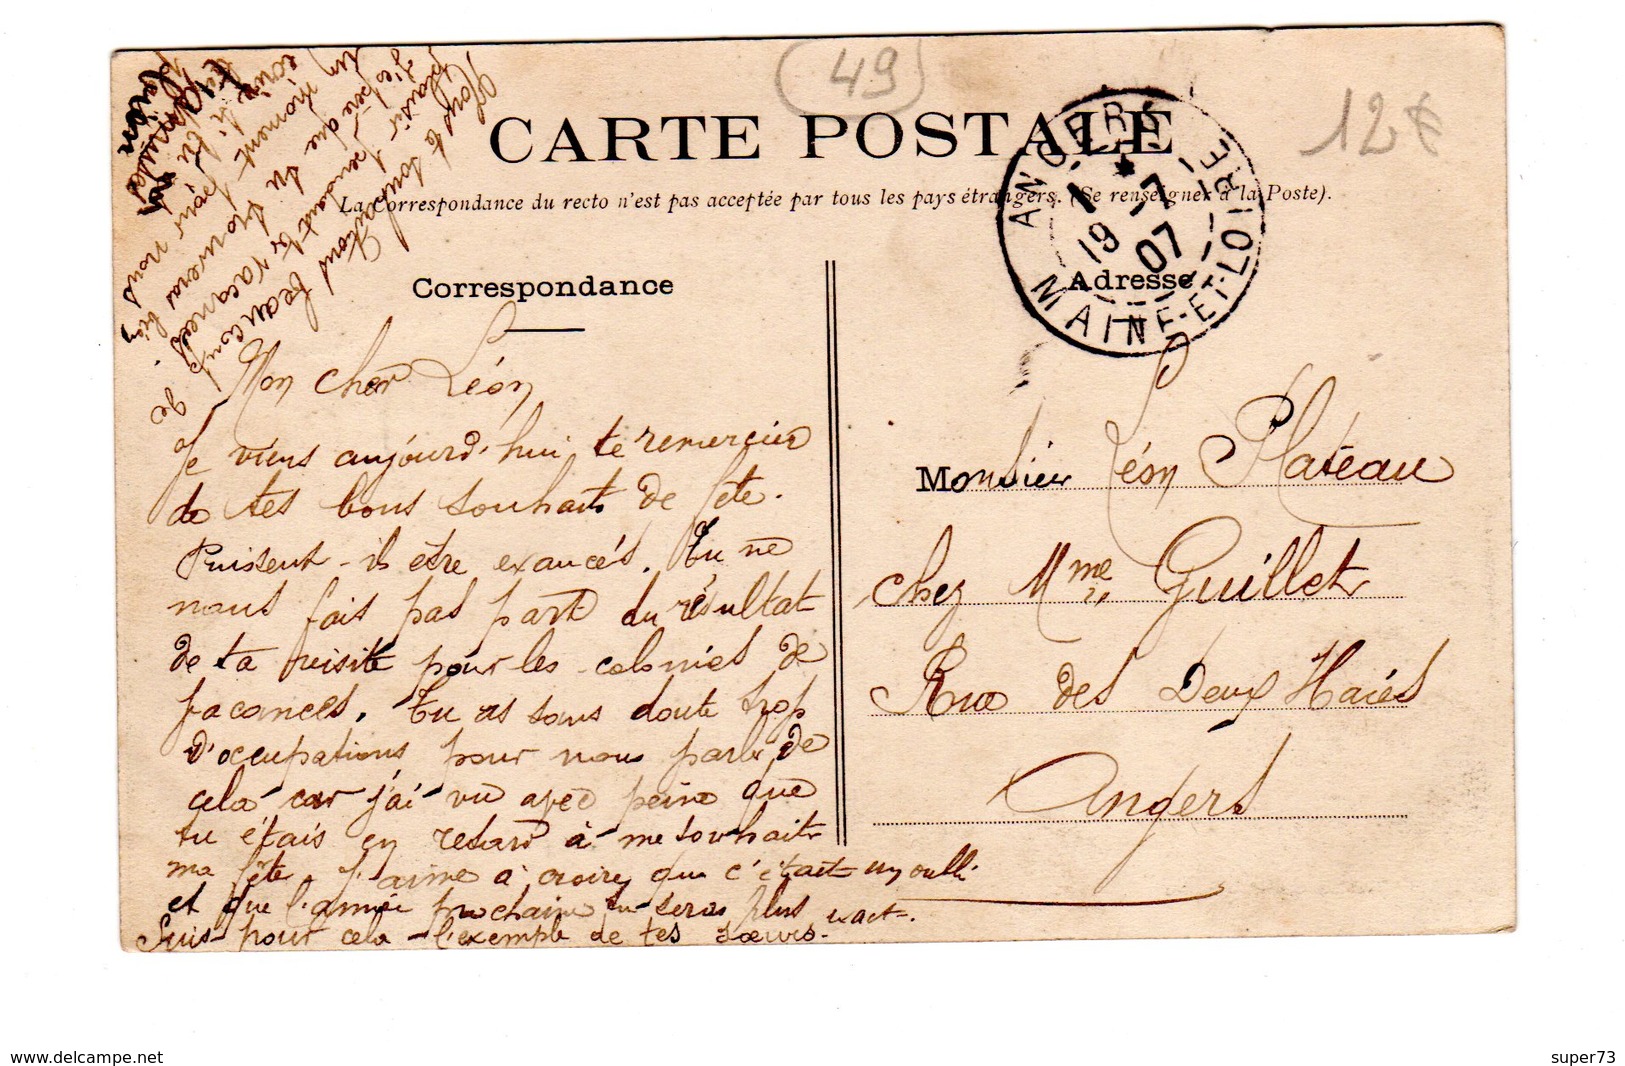 49
12€
CARTE POSTALE
La Correspondance du recto n'est pas acceptée par tous les pays étrangers. (Se renseigner à la Poste).
ANGERS
1 - 7
19 07
MAINE-ET-LOIRE
Correspondance
Adresse
Mon cher Léon
Je viens aujourd'hui te remercier
de tes bons souhaits de fête.
Puissent-ils être exaucés. Tu ne
nous fais pas part du résultat
de ta visite pour les colonies de
vacances. Tu as sans doute trop
d'occupations pour nous parler de
cela car j'ai vu avec peine que
tu étais en retard à me souhaiter
ma fête. J'aime à croire que c'était un oubli
et que l'année prochaine tu seras plus exact.
Suis pour cela l'exemple de tes sœurs.
Nous te souhaitons beaucoup de
plaisir pendant tes vacances.
J'espère que tu trouveras bien
un moment pour nous
écrire
Monsieur Léon Plateau
chez Mme Guillet
Rue des Deux Haies
Angers
www.delcampe.net
super73